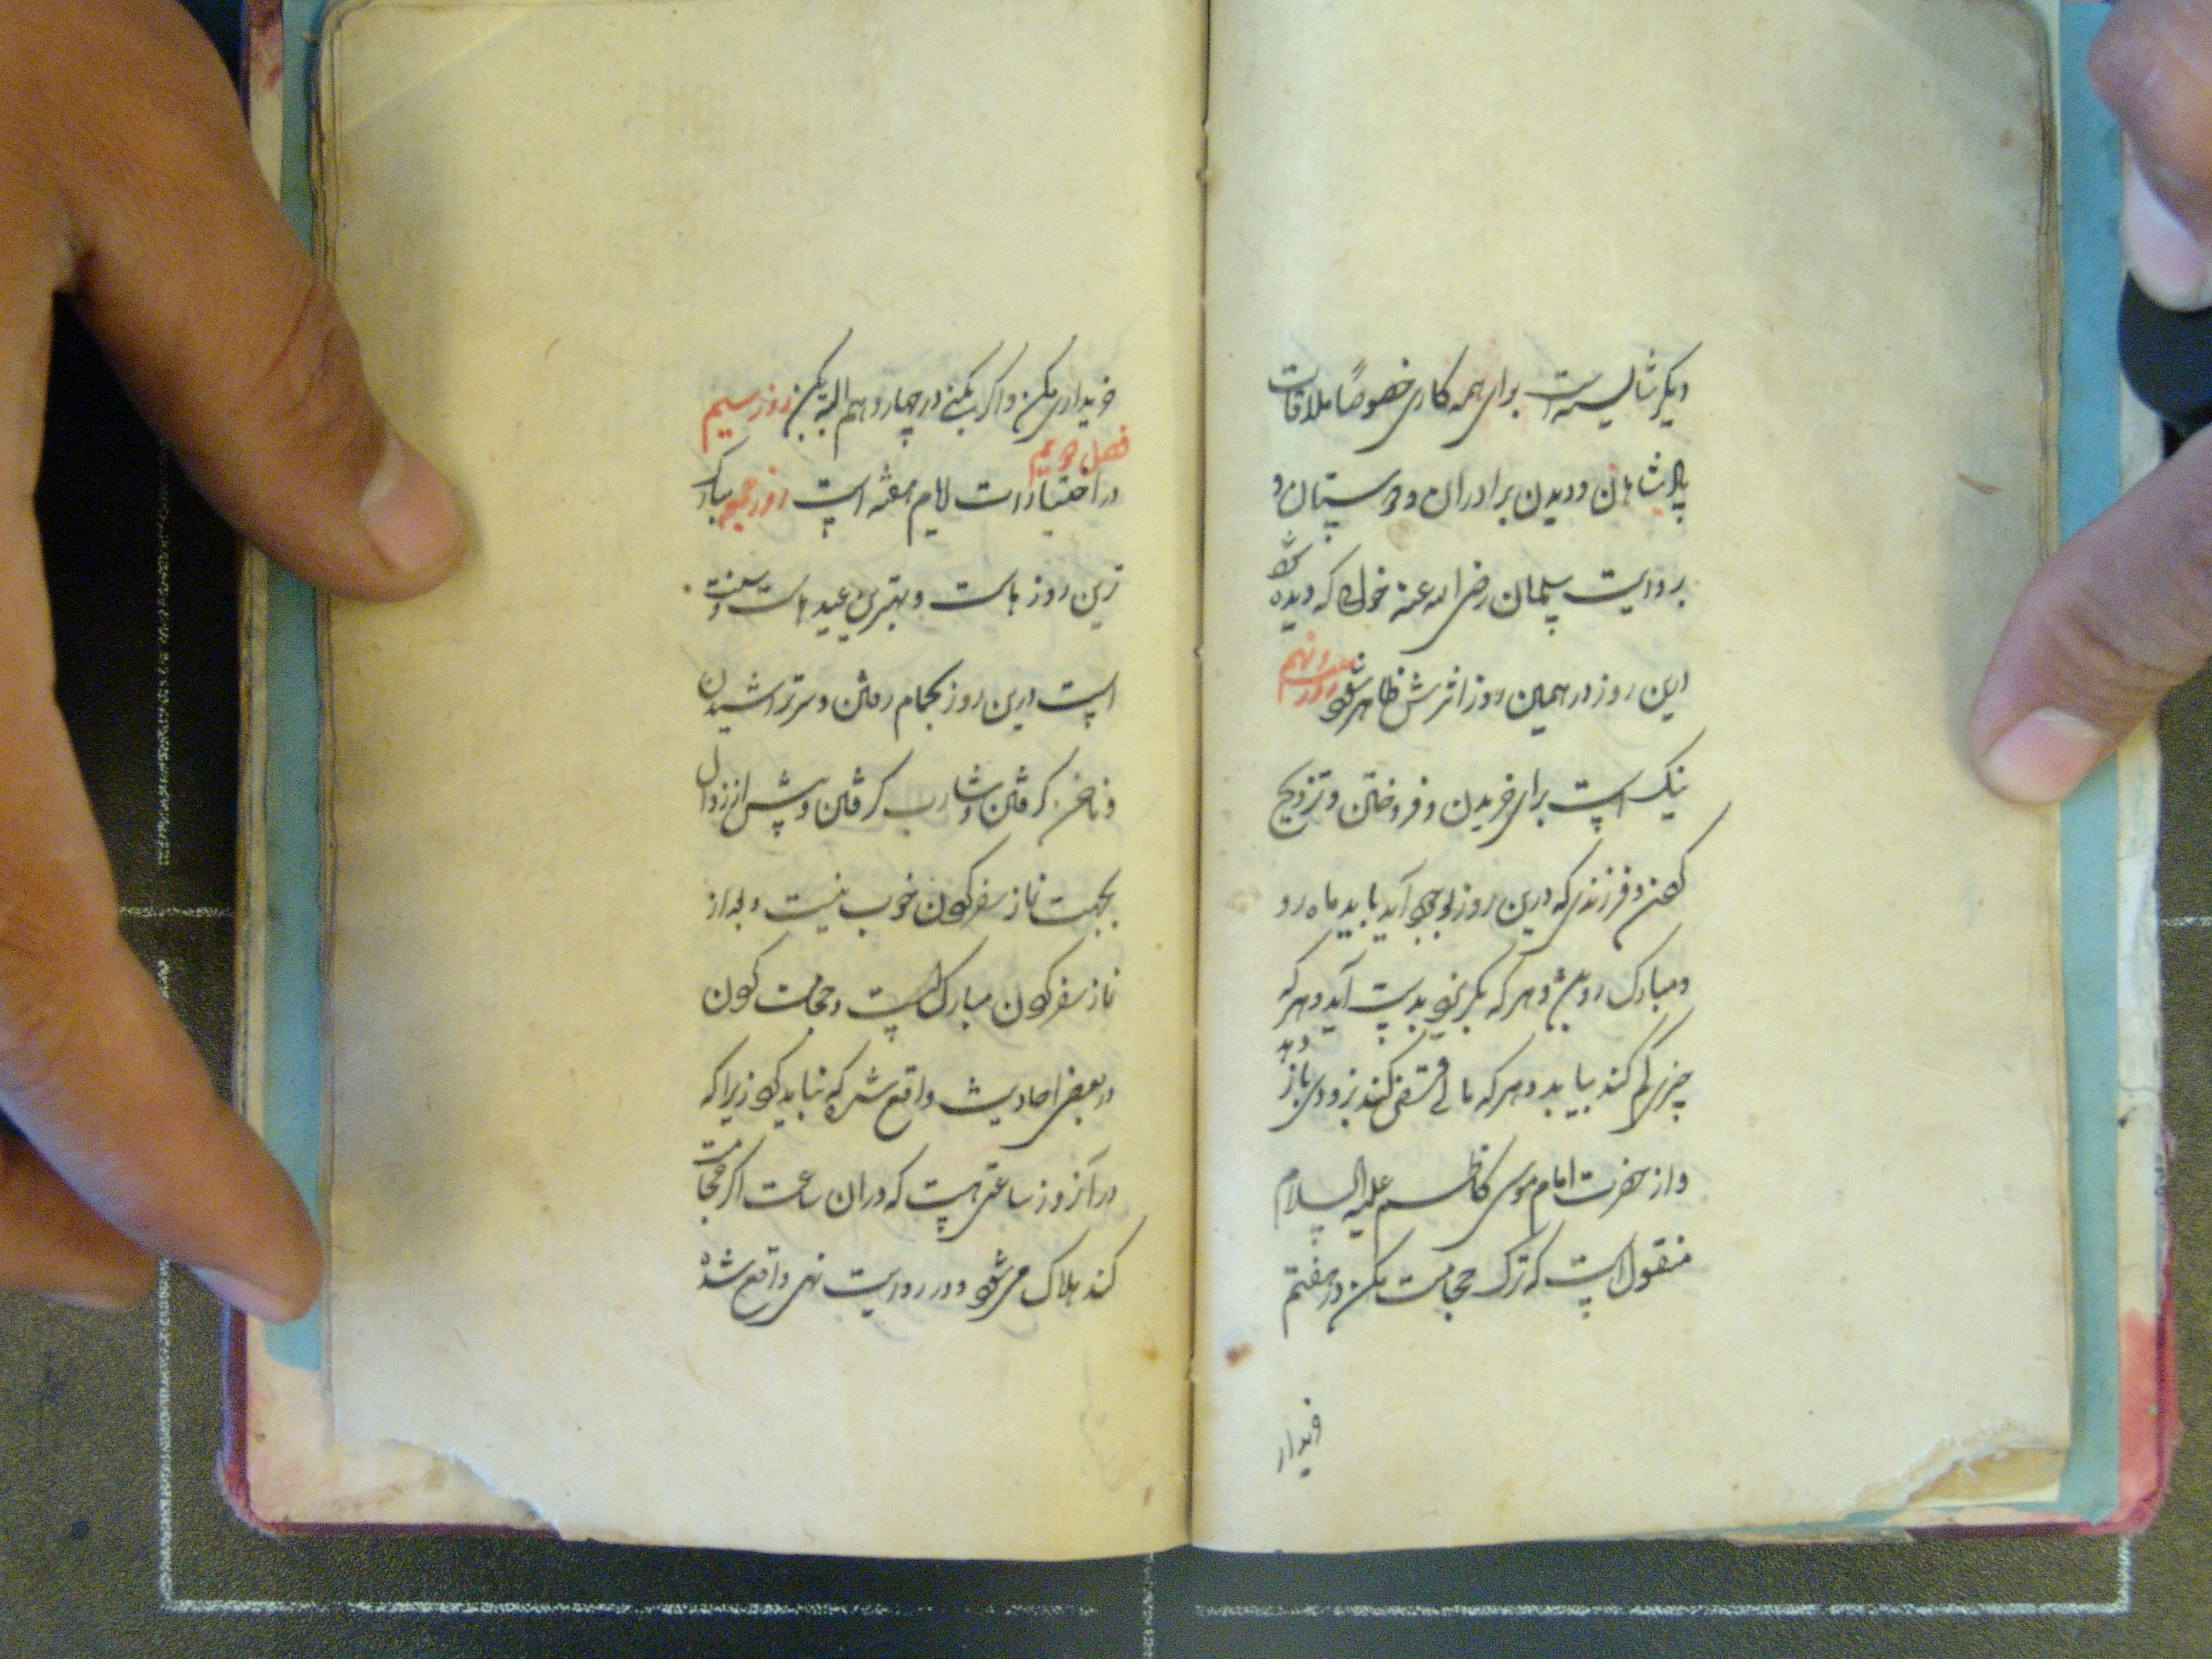 دیگر شایسته است برای همه کاری خصوصًا ملاقات
پادشاهان و دیدن برادران و دوستان و
بروایت سلمان رضی الله عنه خوابی که دیده شود
درین روز در همین روز اثرش ظاهر شود روز بیست و نهم
نیک است برای خریدن و فروختن و تزویج
کردن و فرزندی که درین روز بوجود آید باید ماه رو
و مبارک رو باشد و هر که بگریزد بدست آید و هر که
چیزی گم کند بیابد و هر که مالی قرض کند بزودی باز دهد
و از حضرت امام موسی کاظم علیه السلام
منقول است که ترک حجامت مکن در هفتم
خریدار
خریداری مکن و اگر بکنی در چهاردهم البته بکن روز سیم
فصل دویم
در اختیارات ایام هفته است روز جمعه مبارک
ترین روز هاست و بهترین عید هاست و سنت
است درین روز بحمام رفتن و سر تراشیدن
و ناخن گرفتن و شارب گرفتن و پیش از زوال
بجهت نماز سفر کردن خوب نیست و بعد از
نماز سفر کردن مبارک است و حجامت کردن
در بعضی احادیث واقع شده که نباید کرد زیرا که
در آنروز ساعتی هست که در ان ساعت اگر حجامت
کند هلاک می شود و در روایت نهی واقع شده